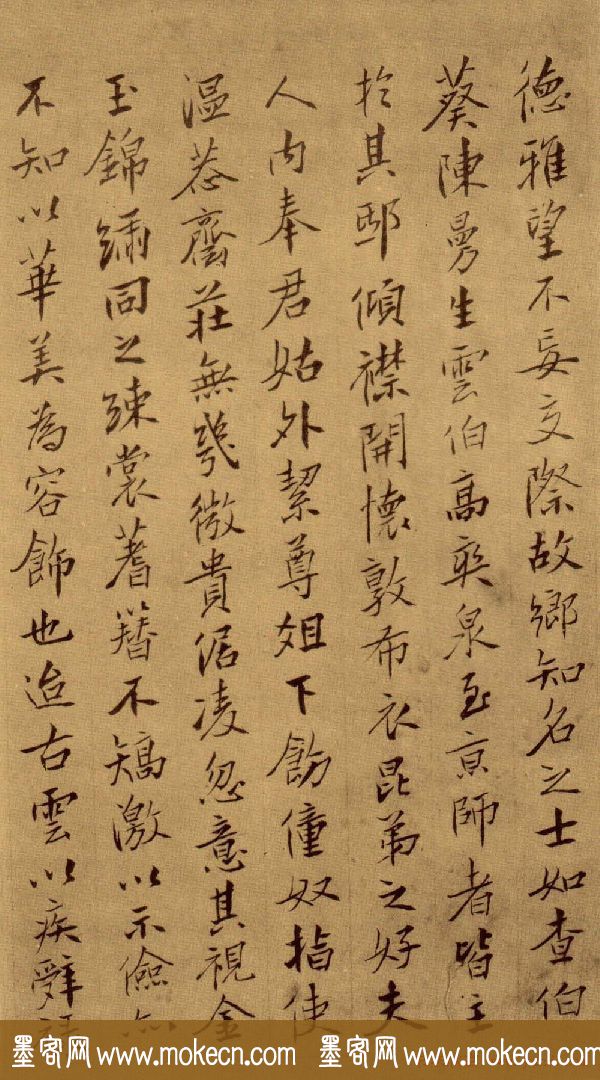 德雅望不妄交際故鄉知名之士如查伯
葵陳曼生雲伯高爽泉至京師者皆主
於其邸傾襟開懷敦布衣昆弟之好夫
人內奉君姑外絜尊俎下飭僮奴指使
溫恭齋莊無幾微貴倨凌忽意其視金
玉錦繡同之疎裳蓍簪不矯激以示儉亦
不知以華美為容飾也迨古雲以疾辭
墨客网 www.mokecn.com 墨客网 www.mokecn.com